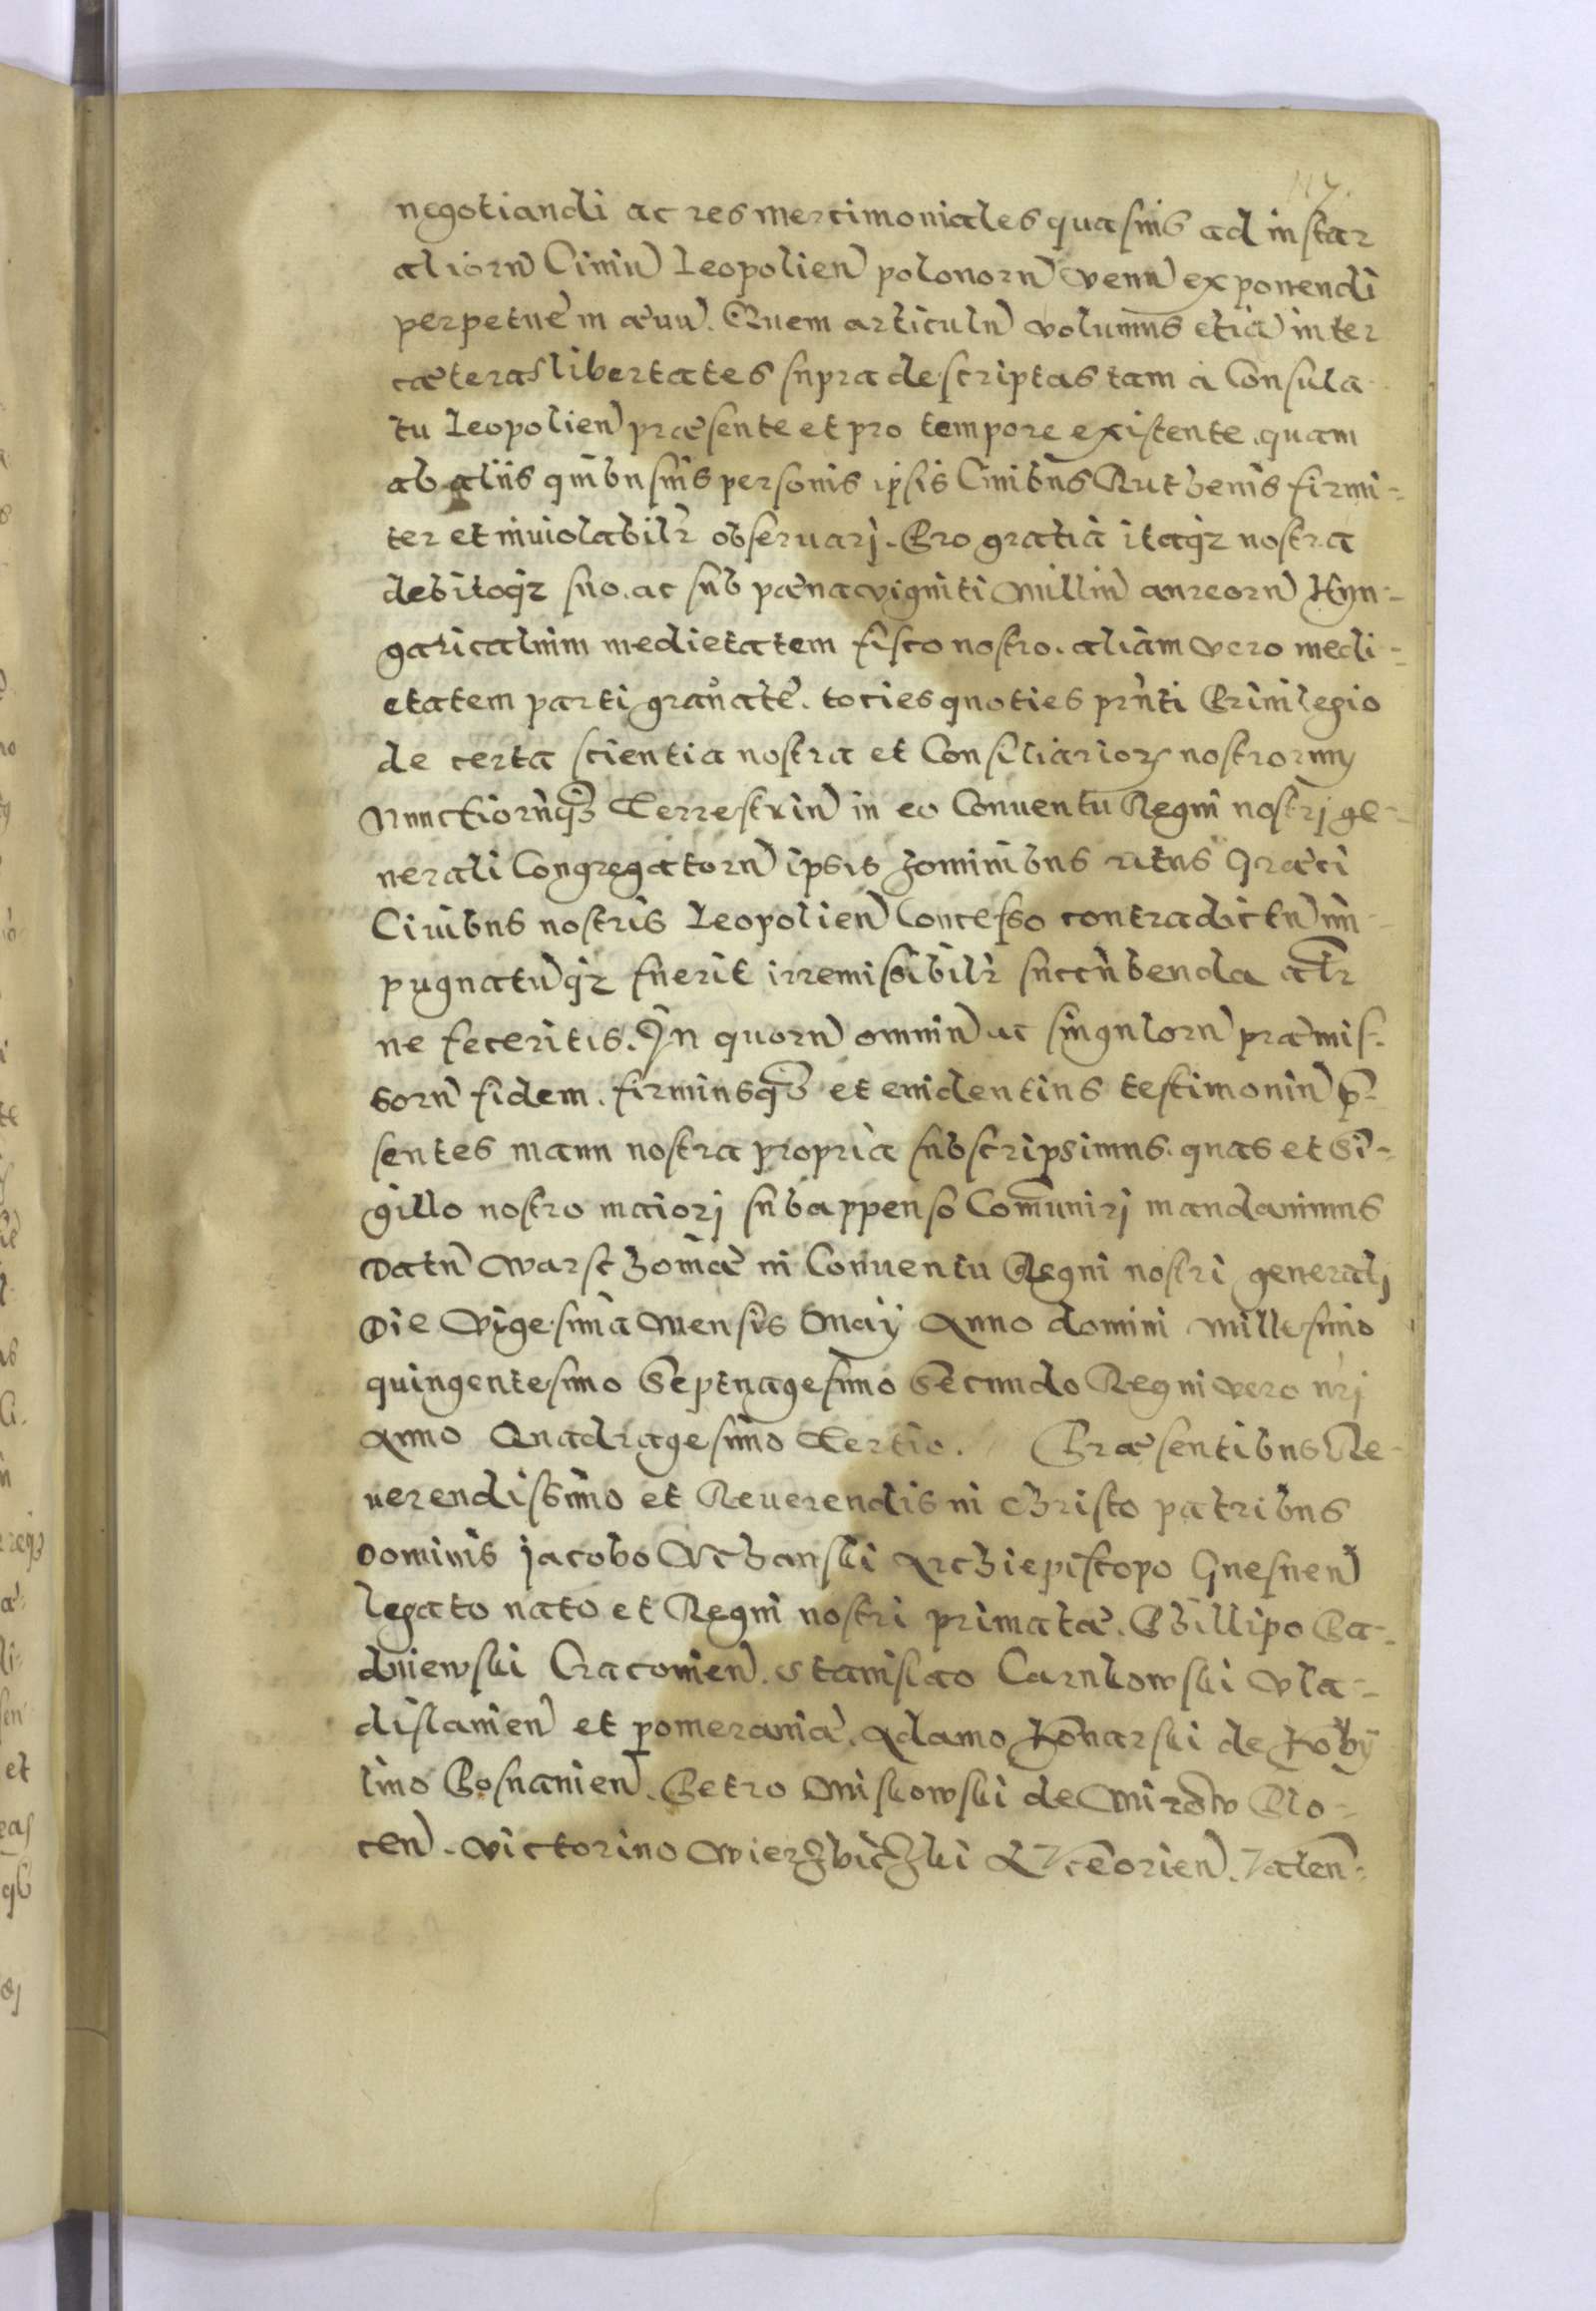 negotiandi ac res mercimoniales quasuis ad instar
aliorū Ciuiū Leopolien̄ polonorū venū exponendi
perpetue in æuū. Quem articulū volumus etiā inter
cæteras libertates supra descriptas tam à Consula-
tu Leopolien̄ præsente et pro tempore existente, quam
ab aliis quibusuis personis ipsis Ciuibus Ruthenis firmi-
ter et inuiolabilr̄ obseruarj. Pro gratia itaq₃ nostra
debitoq₃ suo, ac sub pæna viginti milliū aureorū Hun-
garicaliuim medietatem fisco nostro, aliam vero medi-
etatem parti grauatæ, tocies quoties prn̄ti Priuilegio
de certa scientia nostra et Consiliarioꝝ nostrorum
Nunctiorūq₃ Terrestriū in eo Conuentu Regni nostrj ge-
nerali Congregatorū ipsis hominibus ritus Græci
Ciuibus nostris Leopolien̄ Concesso contradictū im-
pugnatūq₃ fuerit irremissibilr̄ succūbenda alr̄
ne feceritis. In quorū omniū ac singulorū præmis-
sorū fidem, firmiusq₃ et euidentius testimoniū p̄-
sentes manu nostra propria subscripsimus, quas et Si-
gillo nostro maiorj subappenso Com̄unirj mandauimus
Datū Warschouiæ in Conuentu Regni nostri generalj
Die Vigesima Mensis Maij Anno domini Millesimo
quingentesimo Septuagesimo Secundo Regni vero nr̄j
Anno Quadragesimo Tertio. Præsentibus Re-
uerendissimo et Reuerendis in Christo patribus
Dominis Jacobo Vchanski Archiepiscopo Gnesnen̄
legato nato et Regni nostri primatæ. Phillipo Pa-
dniewski Cracouien̄. Stanislao Carnkowski Vla-
dislauien̄ et pomeraniæ. Adamo Konarski de Koby
lino Posnanien̄. Petro Miskowski de Mirow Plo-
cen̄. Victorino Wierzbiczki Luceorien̄.